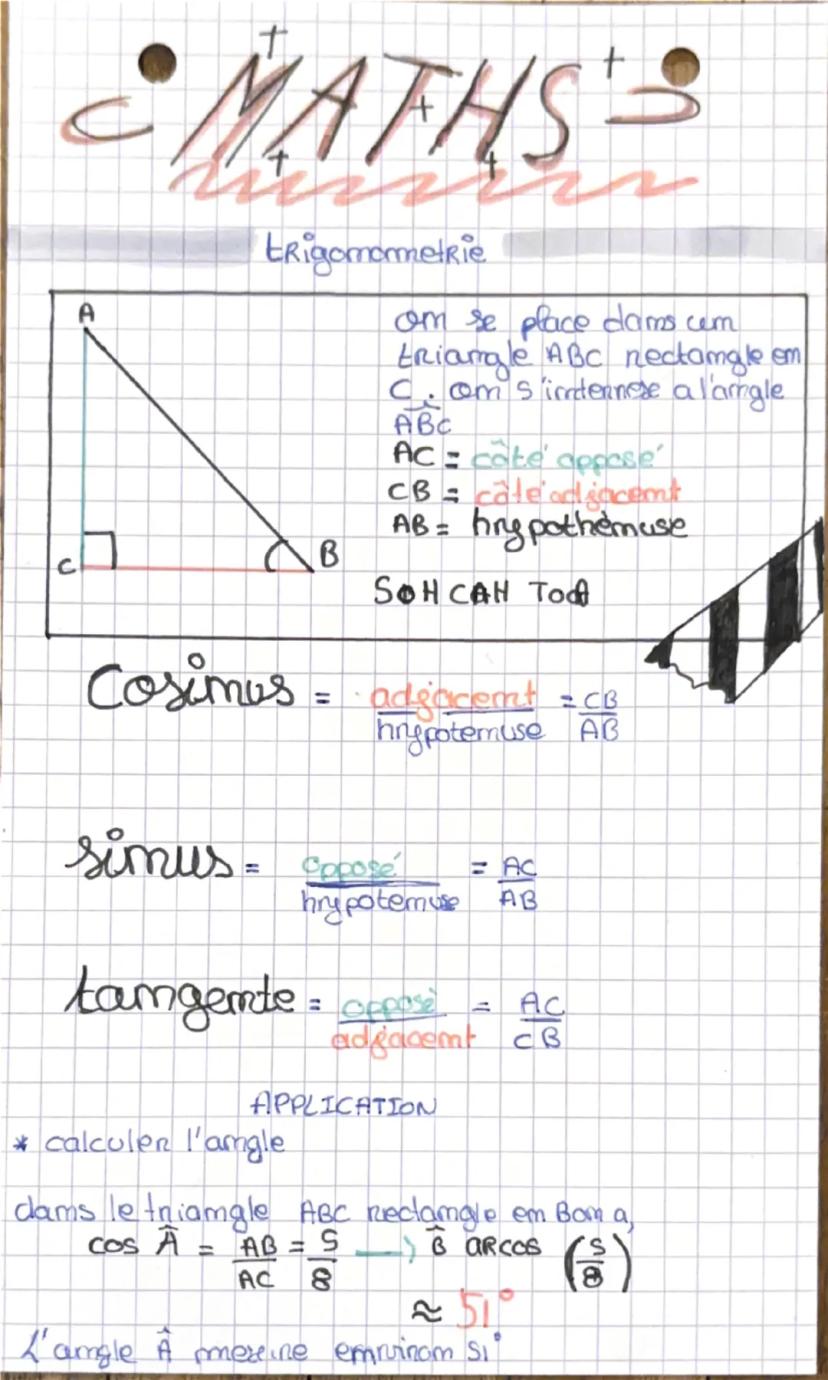 MATHS
trigonometrie
A
C
B
on se place dans un
triangle ABC rectangle en
C. on s'interrese a l'angle
ABC
AC = côté opposé
CB = côté adjacent
AB = hrypothénuse
SOH CAH TOA
Cosinus = adjacent / hrypotenuse = CB / AB
sinus = opposé / hrypotenuse = AC / AB
tangente = opposé / adjacent = AC / CB
APPLICATION
* calculer l'angle
dans le triangle ABC rectangle en B on a,
cos Â = AB / AC = 5 / 8 → B̂ arcos (5 / 8)
≈ 51°
L'angle Â mesure environ 51°